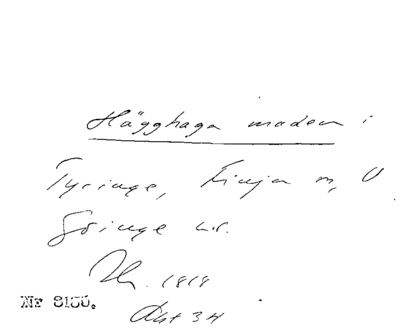 Hägghaga maden i
Tyringe, Finja m, V
Göinge h.r.
1818
Nr 8155.
Akt 34